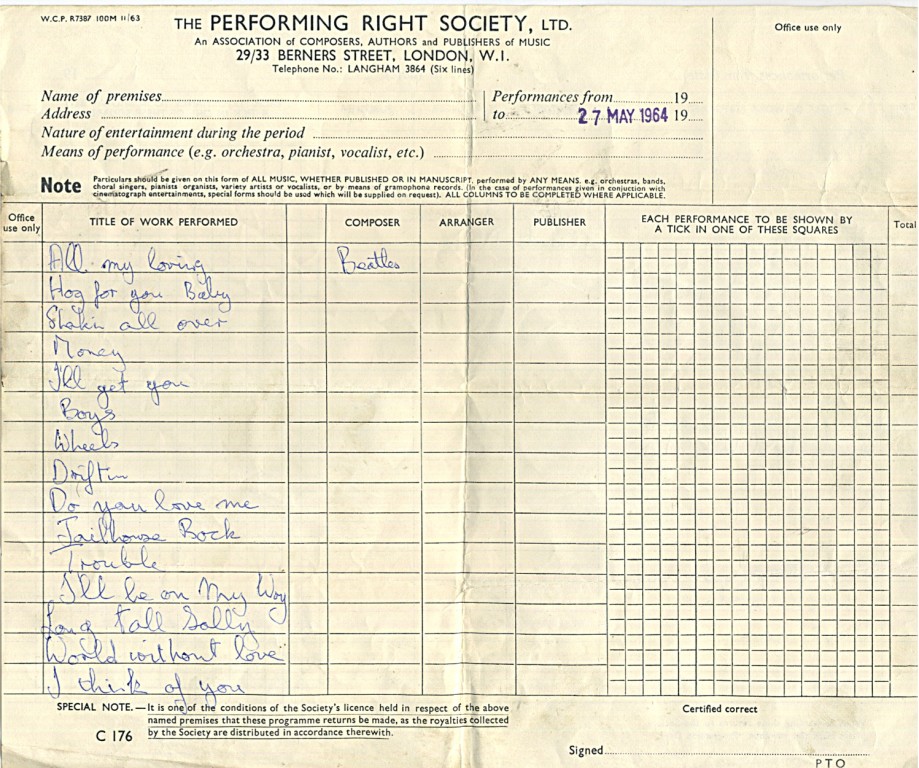 W.C.P. R7387 100M 11/63
THE PERFORMING RIGHT SOCIETY, LTD.
An ASSOCIATION of COMPOSERS, AUTHORS and PUBLISHERS of MUSIC
29/33 BERNERS STREET, LONDON, W.I.
Telephone No.: LANGHAM 3864 (Six lines)
Office use only
Name of premises
Performances from 19
Address
to 27 MAY 1964 19
Nature of entertainment during the period
Means of performance (e.g. orchestra, pianist, vocalist, etc.)
Note Particulars should be given on this form of ALL MUSIC, WHETHER PUBLISHED OR IN MANUSCRIPT, performed by ANY MEANS. e.g, orchestras, bands,
choral singers, pianists organists, variety artists or vocalists, or by means of gramophone records. (In the case of performances given in conjuction with
cinematograph entertainments, special forms should be used which will be supplied on request). ALL COLUMNS TO BE COMPLETED WHERE APPLICABLE.
Office use only
TITLE OF WORK PERFORMED
COMPOSER
ARRANGER
PUBLISHER
EACH PERFORMANCE TO BE SHOWN BY
A TICK IN ONE OF THESE SQUARES
Total
All my loving Beatles
Hog for you Baby
Shakin all over
Money
I'll get you
Boys
Wheels
Driftin
Do you love me
Jailhouse Rock
Trouble
I'll be on My Way
Long tall Sally
World without love
I think of you
SPECIAL NOTE.—It is one of the conditions of the Society's licence held in respect of the above
named premises that these programme returns be made, as the royalties collected
by the Society are distributed in accordance therewith.
C 176
Certified correct
Signed
PTO